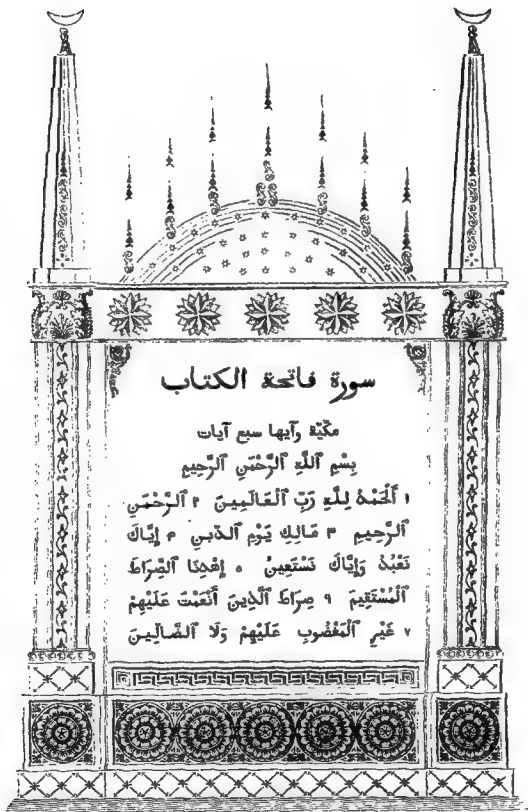 سورة فاتحة الكتاب
مكّيّة وآيها سبع آيات
بِسْمِ ٱللَّهِ ٱلرَّحْمَنِ ٱلرَّحِيمِ
١ أَلْحَمْدُ لِلَّهِ رَبِّ ٱلْعَالَمِينَ ٢ ٱلرَّحْمَنِ
ٱلرَّحِيمِ ٣ مَالِكِ يَوْمِ ٱلدِّينِ ۴ إِيَّاكَ
نَعْبُدُ وَإِيَّاكَ نَسْتَعِينُ ٥ إِهْدِنَا ٱلصِّرَاطَ
ٱلْمُسْتَقِيمَ ٩ صِرَاطَ ٱلَّذِينَ أَنْعَمْتَ عَلَيْهِمْ
٧ غَيْرِ ٱلْمَغْضُوبِ عَلَيْهِمْ وَلَا ٱلضَّالِّينَ